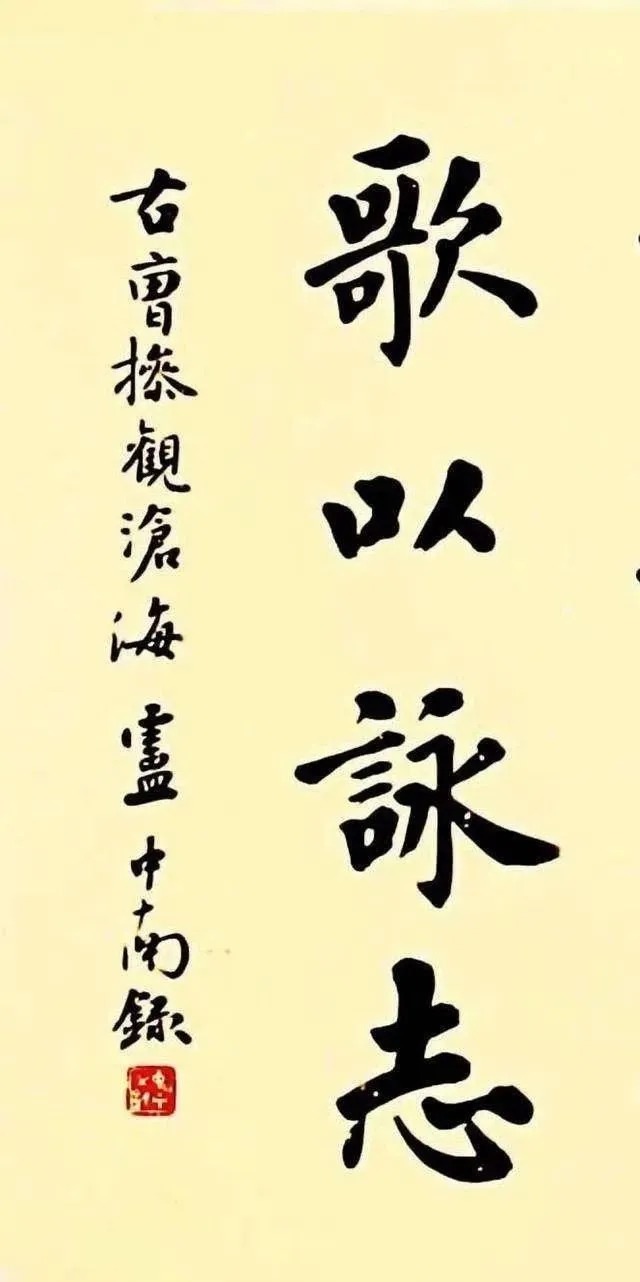 歌以詠志
古曹操觀滄海 盧中南錄